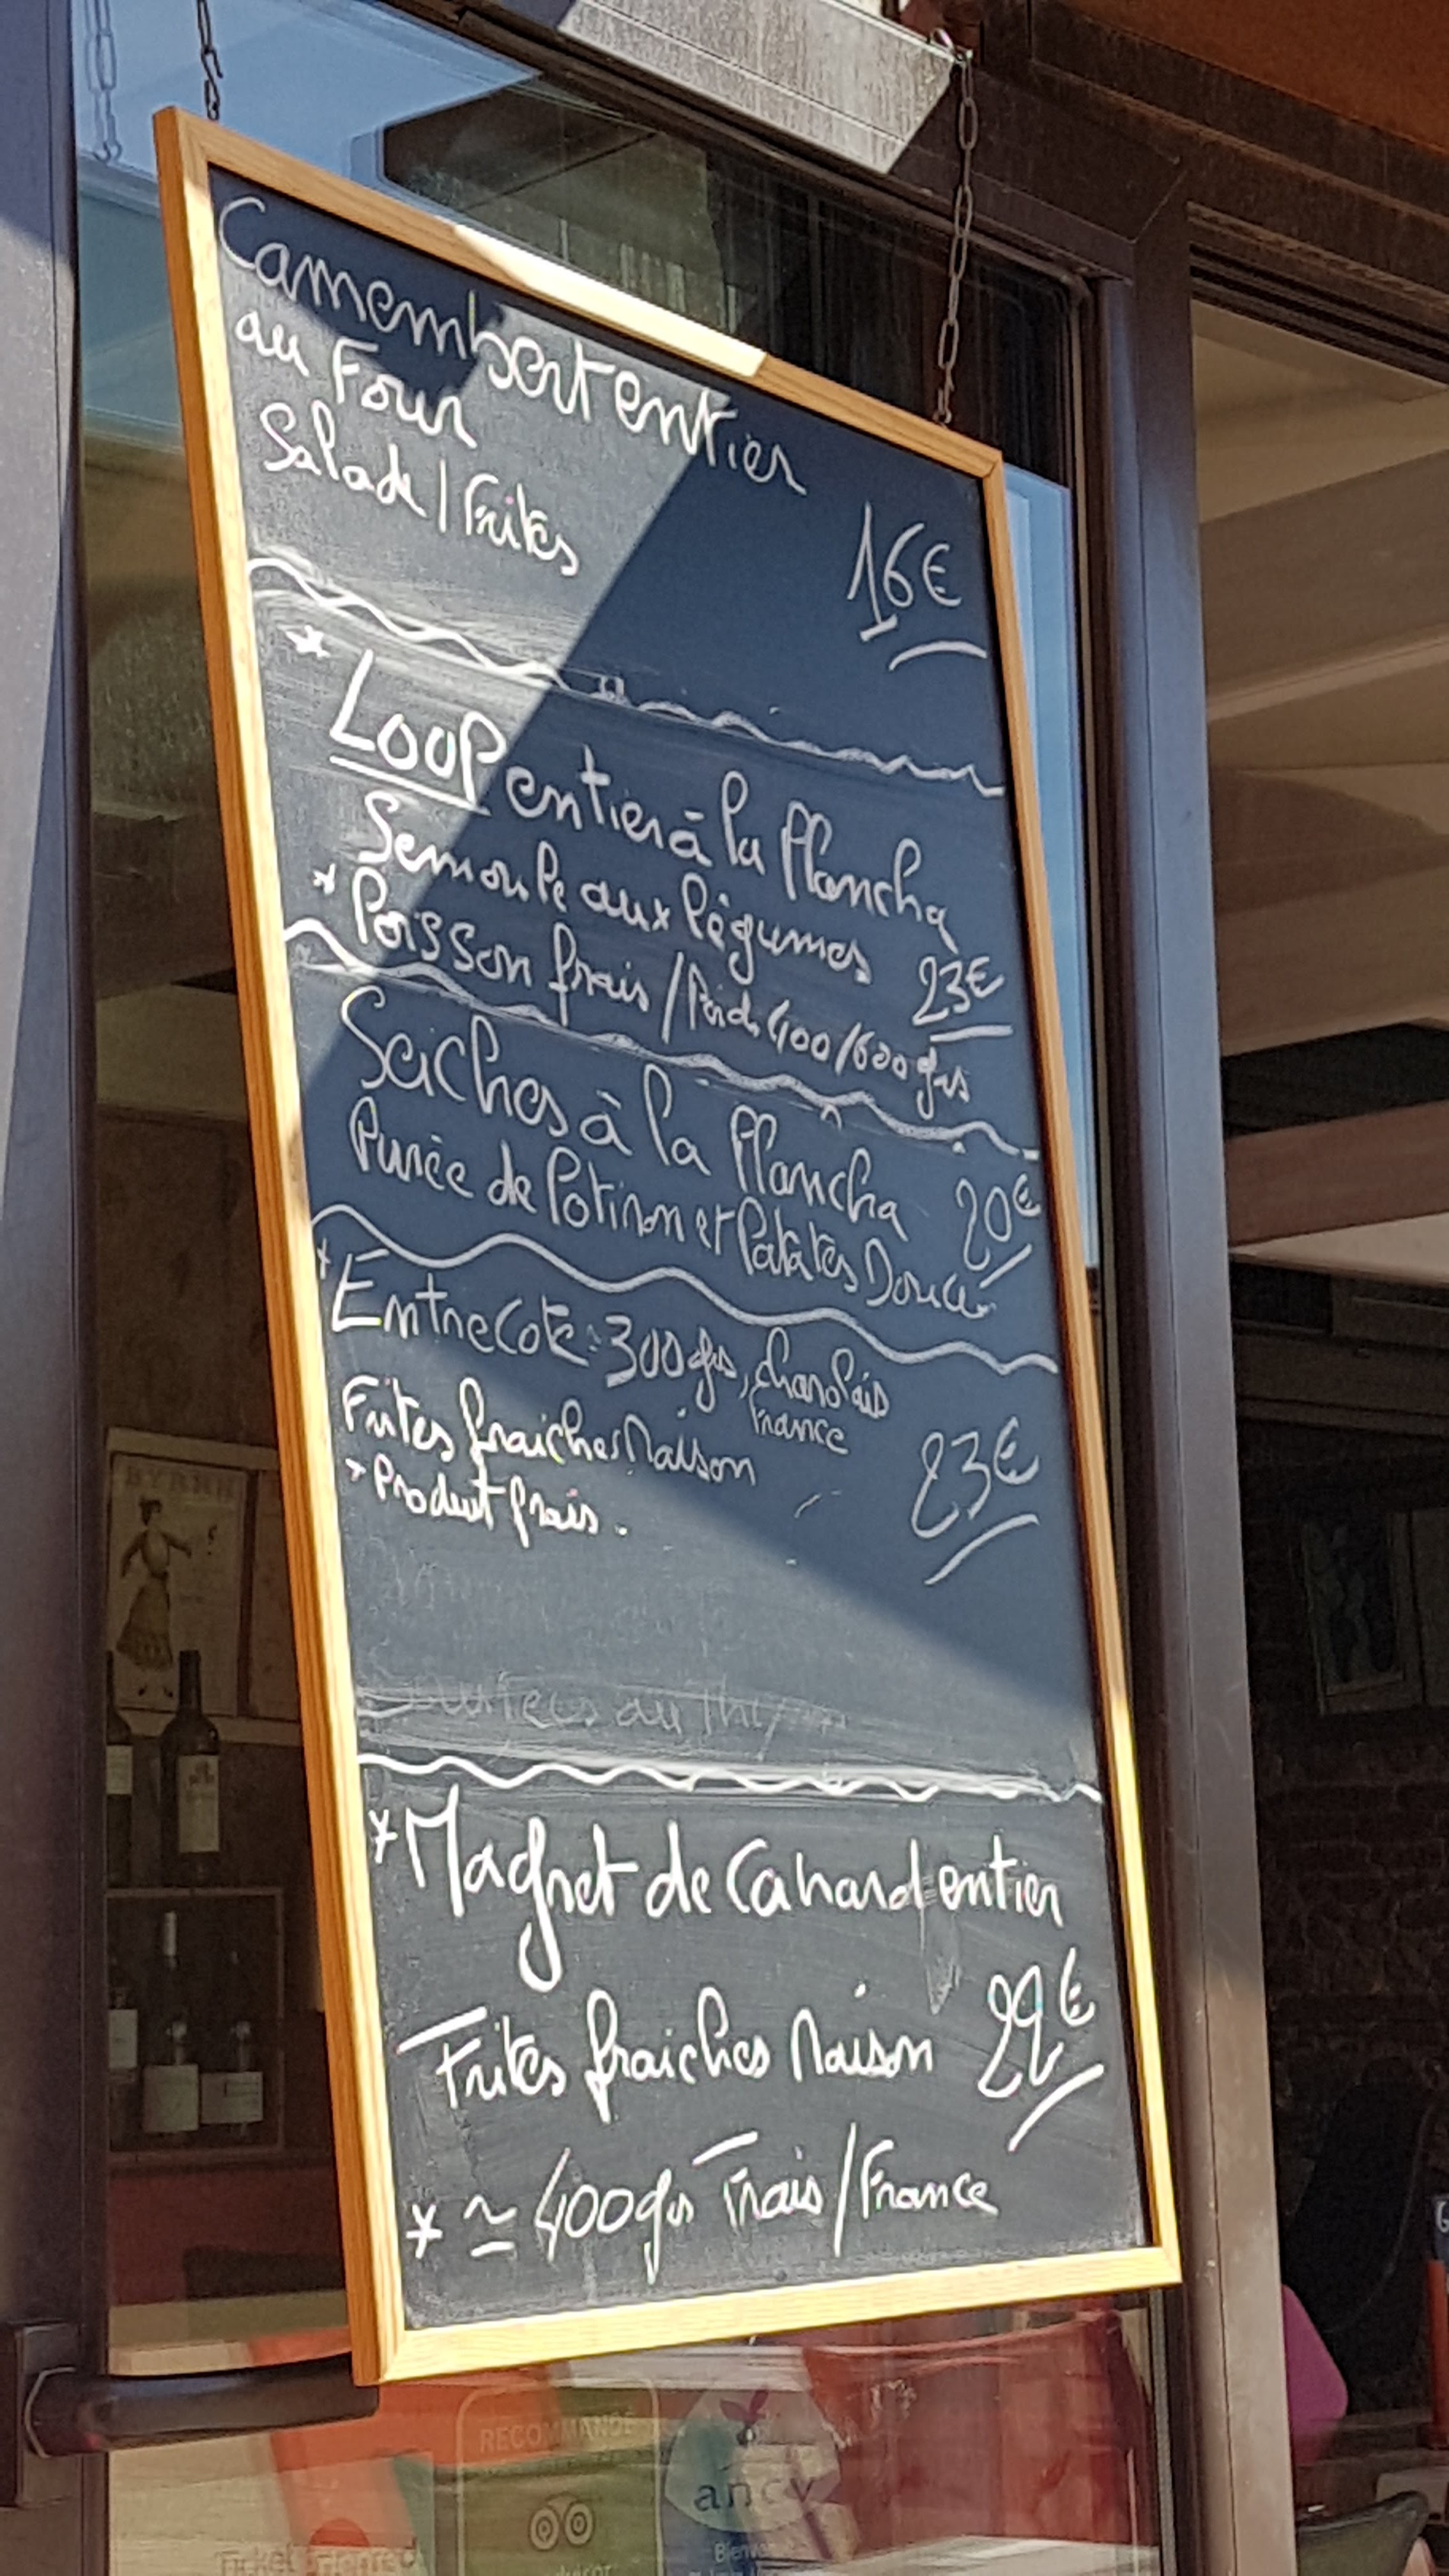 Camembert entier
au Four
Salade / Frites
16€
* LOUP entier à la Plancha
Semoule aux légumes
23€
* Poisson frais / Poids 400/600 grs
Seiches à la Plancha
20€
Purée de Potiron et Patates Douces
* Entrecote : 300 grs, charolais
France
Frites fraiches Maison
23€
* Produit frais.
au Thym
* Magret de Canard entier
Frites fraiches Maison
22€
* ≃ 400 grs Frais / France
BYRRH
RECOMMANDÉ
ancv